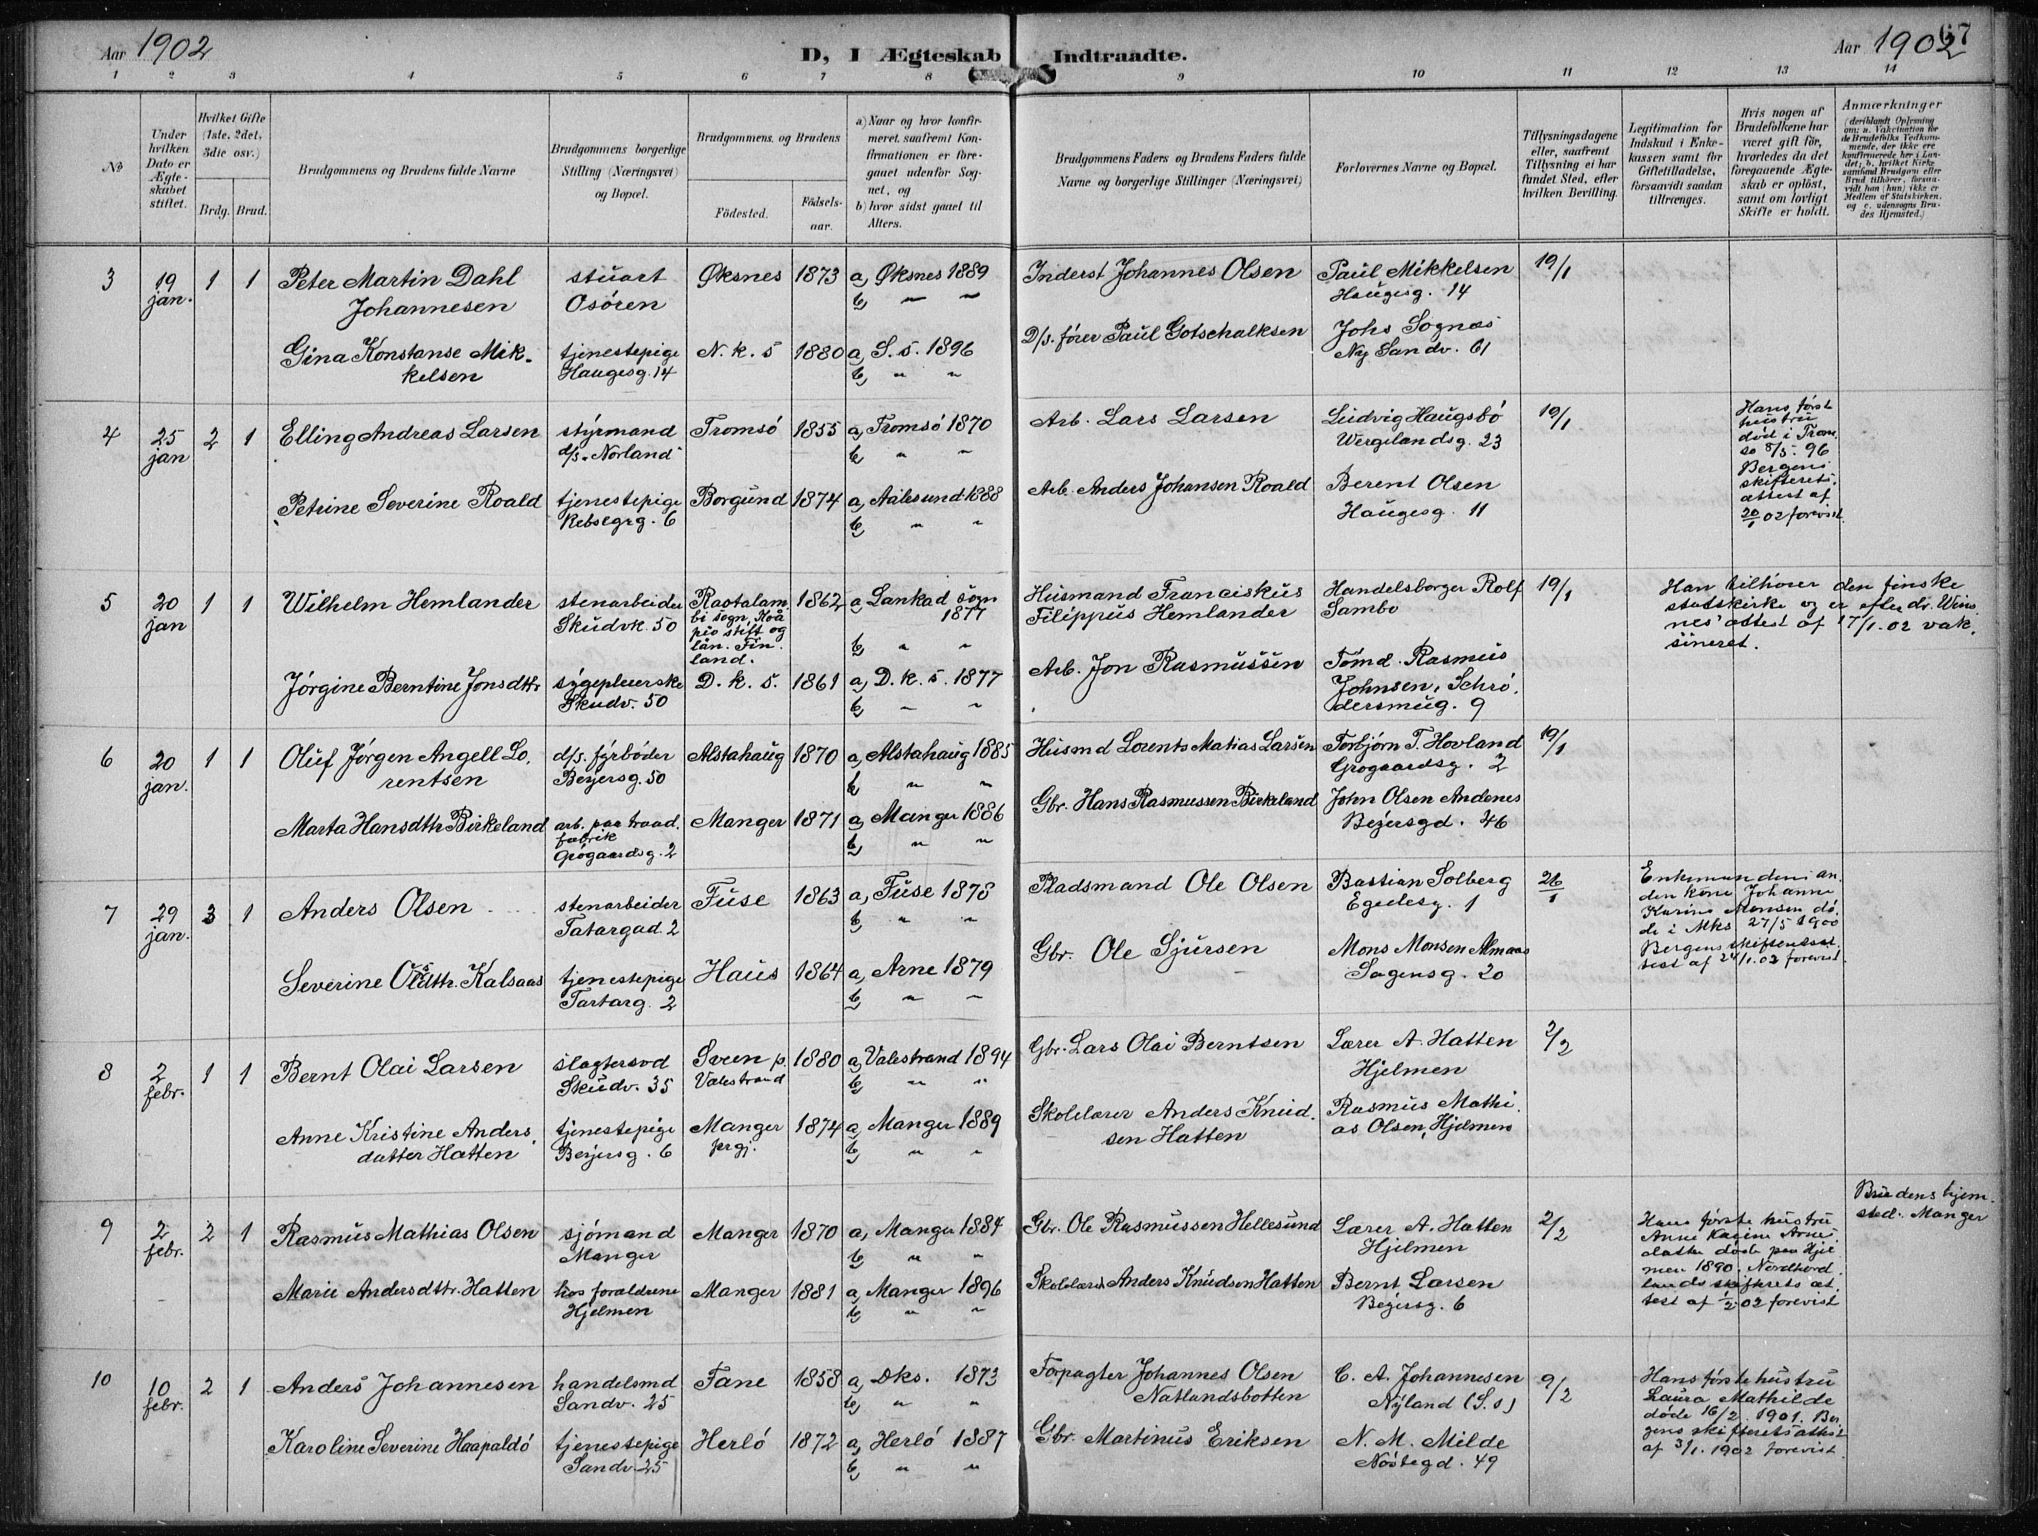 Aar 1902
D, I Ægteskab Indtraadte.
Aar 1902
67
1 2 3 4 5 6 7 8 9 10 11 12 13 14
No
Under hvilken Dato er Ægteskabet stiftet.
Hvilket Gifte (1ste, 2det, 3die osv.)
Brdg. Brud.
Brudgommens og Brudens fulde Navne
Brudgommens borgerlige Stilling (Næringsvei) og Bopæl.
Brudgommens og Brudens
Födested.
Födselsaar.
a) Naar og hvor konfirmeret, saafremt Konfirmationen er foregaaet udenfor Sognet, og
b) hvor sidst gaaet til Alters.
Brudgommens Faders og Brudens Faders fulde Navne og borgerlige Stillinger (Næringsvei)
Forlovernes Navne og Bopæl.
Tillysningsdagene eller, saafremt Tillysning ei har fundet Sted, efter hvilken Bevilling.
Legitimation for Indskud i Enkekassen samt for Giftetilladelse, forsaavidt saadan tiltrænges.
Hvis nogen af Brudefolkene har været gift før, hvorledes da det foregaaende Ægteskab er opløst, samt om lovligt Skifte er holdt.
Anmærkninger (deriblandt Oplysning om: a. Vakcination for de Brudefolks Vedkommende, der ikke ere konfirmerede her i Landet; b. hvilket Kirkesamfund Brudgom eller Brud tilhører, forsaavidt han (hun) ikke er Medlem af Statskirken, og c. udensogns Brudes Hjemsted.)
3 19 jan. 1 1 Peter Martin Dahl Johannesen stuart Osören Øksnes 1873 a, Øksnes 1889 b, " " Inderst Johannes Olsen Paul Mikkelsen Haugesg. 14 19/1
Gina Konstanse Mikkelsen tjenestepige Haugesg. 14 N. k. s 1880 a, S. s. 1896 b, " " D/s. fører Paul Gotschalksen Johs Sognæs Ny Sandv. 61
4 25 jan 2 1 Elling Andreas Larsen styrmand d/s. Norland Tromsö 1855 a, Tromsö 1870 b, " " Arb. Lars Larsen Ludvig Haugsbö Wergelandsg. 23 19/1 Hans först hustru död i Tromsö 8/5 96 Bergens skifterets. attest af 20/1 02 forevist.
Petrine Severine Roald tjenestepige Rebslgrg. 6 Borgund 1874 a, Aalesund 1888 b, " " Arb. Anders Johansen Roald Berent Olsen Haugesg. 11
5 20 jan 1 1 Wilhelm Hemlander stenarbeider Skudvk. 50 Rastalambi sogn, Koåpio stift og län. Finland. 1862 a, Lankad sogn 1877 b, " " Husmand Franciskus Filippus Hemlander Handelsborger Rolf Sambo 19/1 Han tilhører den finske statskirke og er efter dr. Winsnes' attest af 17/1. 02 vaksineret.
Jörgine Berntine Jonsdttr sygepleierske Skudv. 50 D. k. s. 1861 a, D. k. s. 1877 b, " " Arb. Jon Rasmussen Tömd. Rasmus Johnsen, Schrödersmug. 9
6 20 jan. 1 1 Oluf Jörgen Angell Lorentsen d/s. fyrböder Beyersg. 50 Alstahaug 1870 a, Alstahaug 1885 b, " " Husmd Lorents Matias Larsen Torbjörn T. Hovland Grogaardsg. 2 19/1
Marta Hansdttr Birkeland arb. paa traadfabrik Grögaardsg. 2 Manger 1871 a, Manger 1886 b, " " Gbr. Hans Rasmussen Birkeland John Olsen Andenes Beyersgd. 46
7 29 jan. 3 1 Anders Olsen stenarbeider Tatargad. 2 Fuse 1863 a, Fuse 1878 b, " " Pladsmand Ole Olsen Bastian Solberg Egedesg. 1 26/1 Enkemand den anden kone Johanne Karine Monsen döde i Mks 27/5 1900 Bergens skifteretsattest af 24/1. 02 forevist.
Severine Olsdttr. Kalsaas tjenestepige Tartarg. 2 Haus 1864 a, Arne 1879 b, " " Gbr. Ole Sjursen Mons Monsen Almaas Sagensg. 20
8 2 febr. 1 1 Bernt Olai Larsen slagtersvd Skudv. 35 Sveen p. Valestrand 1880 a, Valestrand 1894 b, " " Gbr. Lars Olai Berntsen Lærer A. Hatten Hjelmen 2/2
Anne Kristine Andersdatter Hatten tjenestepige Beyersg. 6 Manger prgj. 1874 a, Manger 1889 b, " " Skolelærer Anders Knudsen Hatten Rasmus Mathias Olsen, Hjelmen
9 2 febr. 2 1 Rasmus Mathias Olsen sjömand Manger Manger 1870 a, Manger 1884 b, " " Gbr. Ole Rasmussen Hellesund Lærer A. Hatten Hjelmen 2/2 Hans første hustru Anne Karine Arnedatter döde paa Hjelmen 1890. Nordhordlands skifterets attest af 1/2 02 forevist Brudens hjemsted: Manger
Marie Andersdttr. Hatten hos forældrene Hjelmen Manger 1881 a, Manger 1896 b, " " Skolelærer Anders Knudsen Hatten Bernt Larsen Beyersg. 6
10 10 febr. 2 1 Anders Johannesen handelsmd Sandv. 25 Fane 1858 a, Dks. 1873 b, " " Forpagter Johannes Olsen Natlandsbotten C. A. Johannesen Nyland (S. s) 9/2 Hans første hustru Laura Mathilde döde 16/2. 1901. Bergens skifterets attest af 3/1. 1902 forevist
Karoline Severine Haapaldö tjenestepige Sandv. 25 Herlö 1872 a, Herlö 1887 b, " " Gbr. Martinus Eriksen N. M. Milde Nöstegd. 49